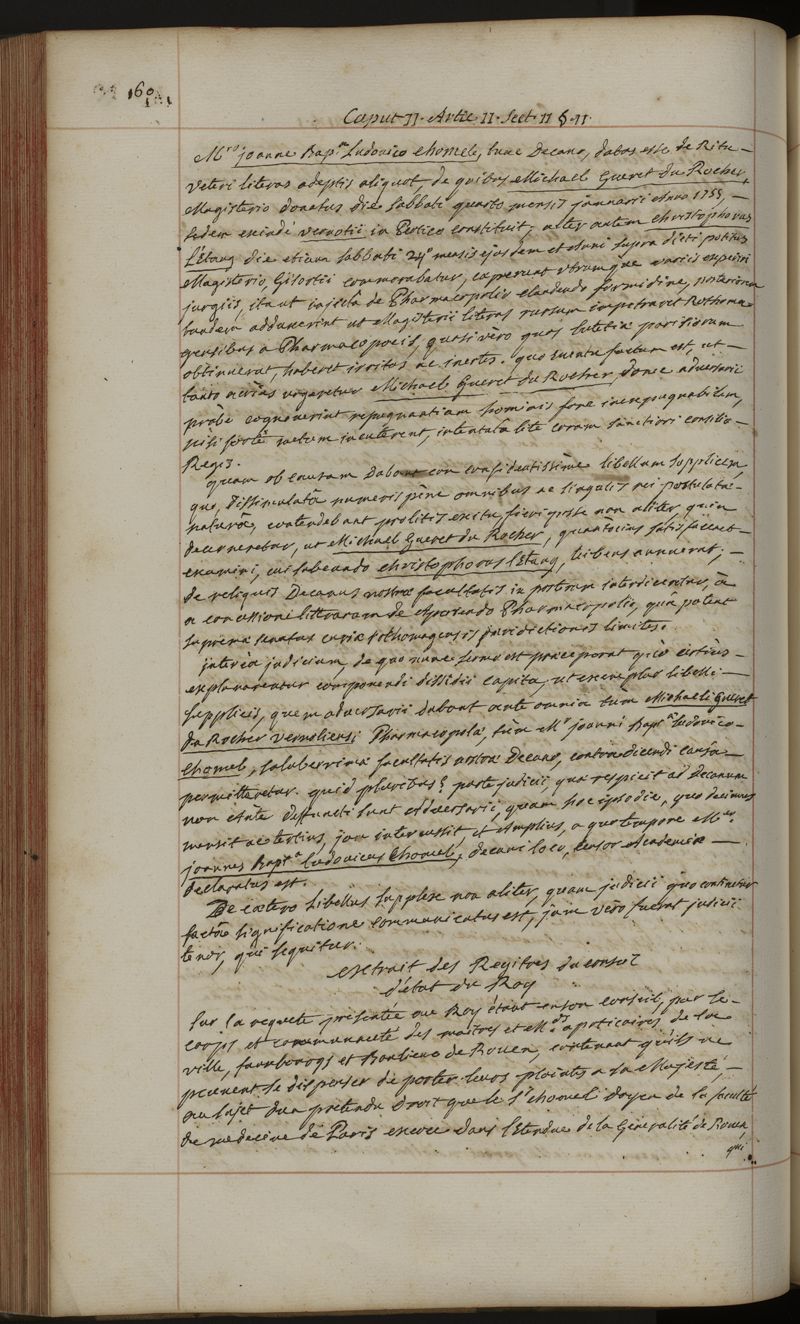 160
Caput II. Artic. II. Sect. II §. II.
M.ro joanne Bap.ta Ludovico Chomel, tunc Decano, dubos esse de Ritu —
Veteri literas adeptis aliquot, de quibus Michael Gueret du Rocher,
Magisterio donatus die sabbati quarto mensis januarii anno 1755, —
sedem exinde vernotii in Pertico constituit; alter autem christophorus
L'Etang die etiam sabbati 24° mensis ejusdem et anni supra dicti potitus
Magisterio, Gisortii commorabatur, coeperunt utrumque variis experiri
jurgiis, ita ut injectâ de Pharmacopolio claudendo formidine, posteriorem
tandem adduxerint ut Magisterii literas rursum impetraret Rothoma-
gensibus a Pharmacopoeis, quasi vero quas lutetiae parisiorum
obtinuerat, haberet irritas ac inertes. quo eventu factum est, ut —
tanto acrius urgeretur Michael Gueret du Rocher, donec adversarii
probè cognoverint repugnantiam hominis fore inexpugnabilem,
nisi fortè metum incuterent, intentata lite coram sanctiori consilio —
Regis.
quam ob causam dabant eum confidentissimè libellum supplicem,
quo, dissimulatâ numeris penè omnibus ac singulis rei postulatae —
naturâ, contendebant pro litis exitu fieri posse non aliter, quin
decerneretur, ut Michael Gueret du Rocher, quantocius satisfaceret —
examini, cui subeundo christophorus L'Etang, libens annuerat; —
de reliquis Decanus nostrae facultatis in posterum interdiceretur, à
a concessione litterarum de aperiendo Pharmacopolio, quà patent
supremi senatus curiae Rothomagensis juridictionis limites.
interea judicium, de quo nunc sermo est praeceperat quò certius —
explanarentur componendi dissidii capita, ut exemplar libelli —
supplicis, quem adversarii dabant ante omnia tum Michaeli Gueret
du Rocher vernoliensi Pharmacopolae, tum M.r joanni Bap.ta ludovico —
Chomel, saluberrimae facultatis nostrae Decano, contradicendi causâ —
permitteretur. quid pluribus? parte judicii, quae respicit ad Decanum
non ante defuncti sunt adversarii, quam hoc ipso die, quo decimus
mensis ac tertius, jam intercessit, et amplius, a quo tempore M.er
joannes Bap.ta ludovicus Chomel, decani loco, censor academiae —
declaratus est.
De caetero Libellus supplex non aliter, quam judicii quo continetur
factae significatione communicatus est, jam vero fuerat judicii
tenor, qui sequitur.
extrait des Registres du conseil
d'état du Roy
sur la requete présentée au Roy étant en son conseil, par le —
corps et communauté des maîtres et M.ds apoticaires de la
ville, fauxbourgs et Banlieue de Rouen, contenant qu'ils ne
peuvent se dispenser de porter leurs plaintes a sa Majesté, —
au sujet d'un pretendu Droit que le S.r chomel doyen de la faculté
de medecine de Paris exerce dans l'étendue de la Généralité de Rouen
qui